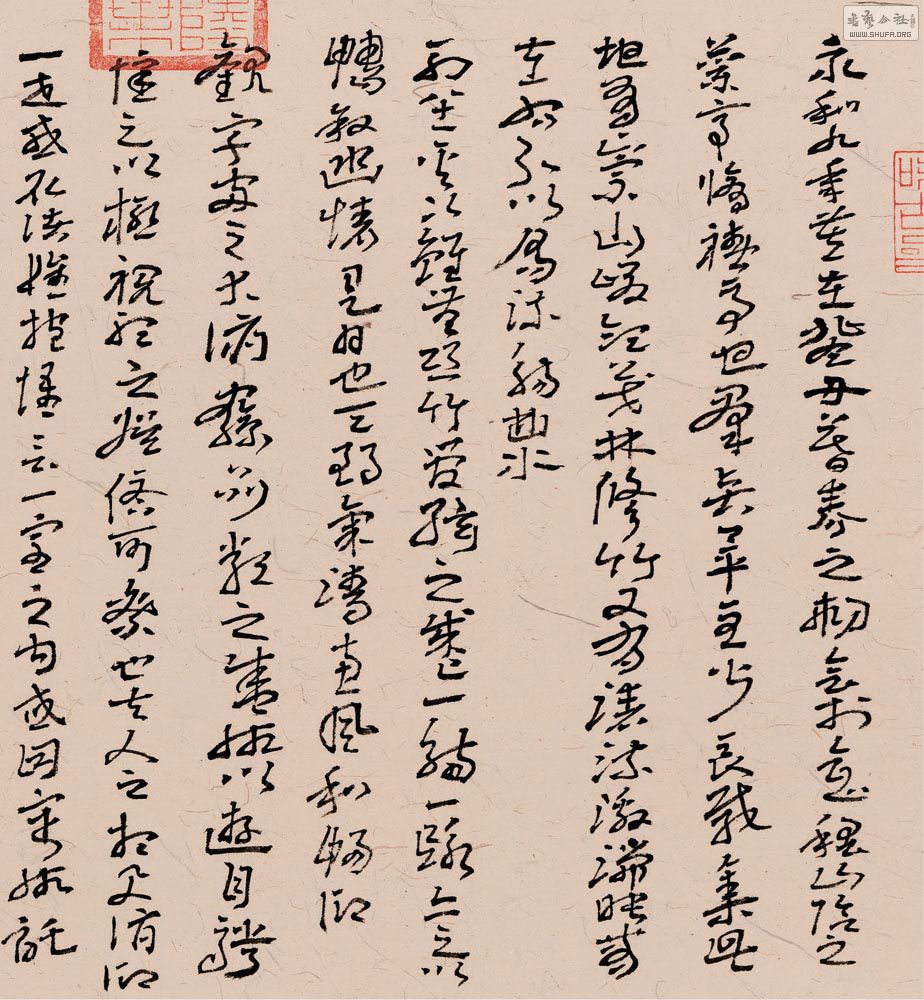 永和九年歲在癸丑暮春之初會於會稽山陰之
蘭亭脩禊事也羣賢畢至少長咸集此
地有崇山峻領茂林脩竹又有清流激湍暎帶
左右引以為流觴曲水
列坐其次雖無絲竹管絃之盛一觴一詠亦足以
暢敘幽情是日也天朗氣清惠風和暢仰
觀宇宙之大俯察品類之盛所以遊目騁
懷足以極視聽之娛信可樂也夫人之相與俯仰
一世或取諸懷抱悟言一室之內或因寄所託
書藝公社
WWW.SHUFA.ORG